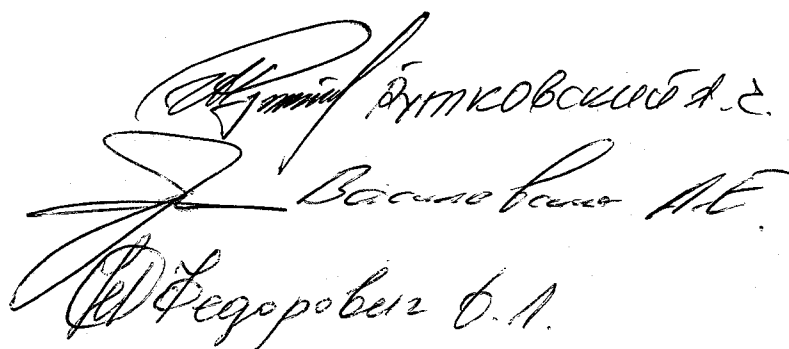 Рутковский А.С.
Василовский А.Е.
Федорович В.Л.